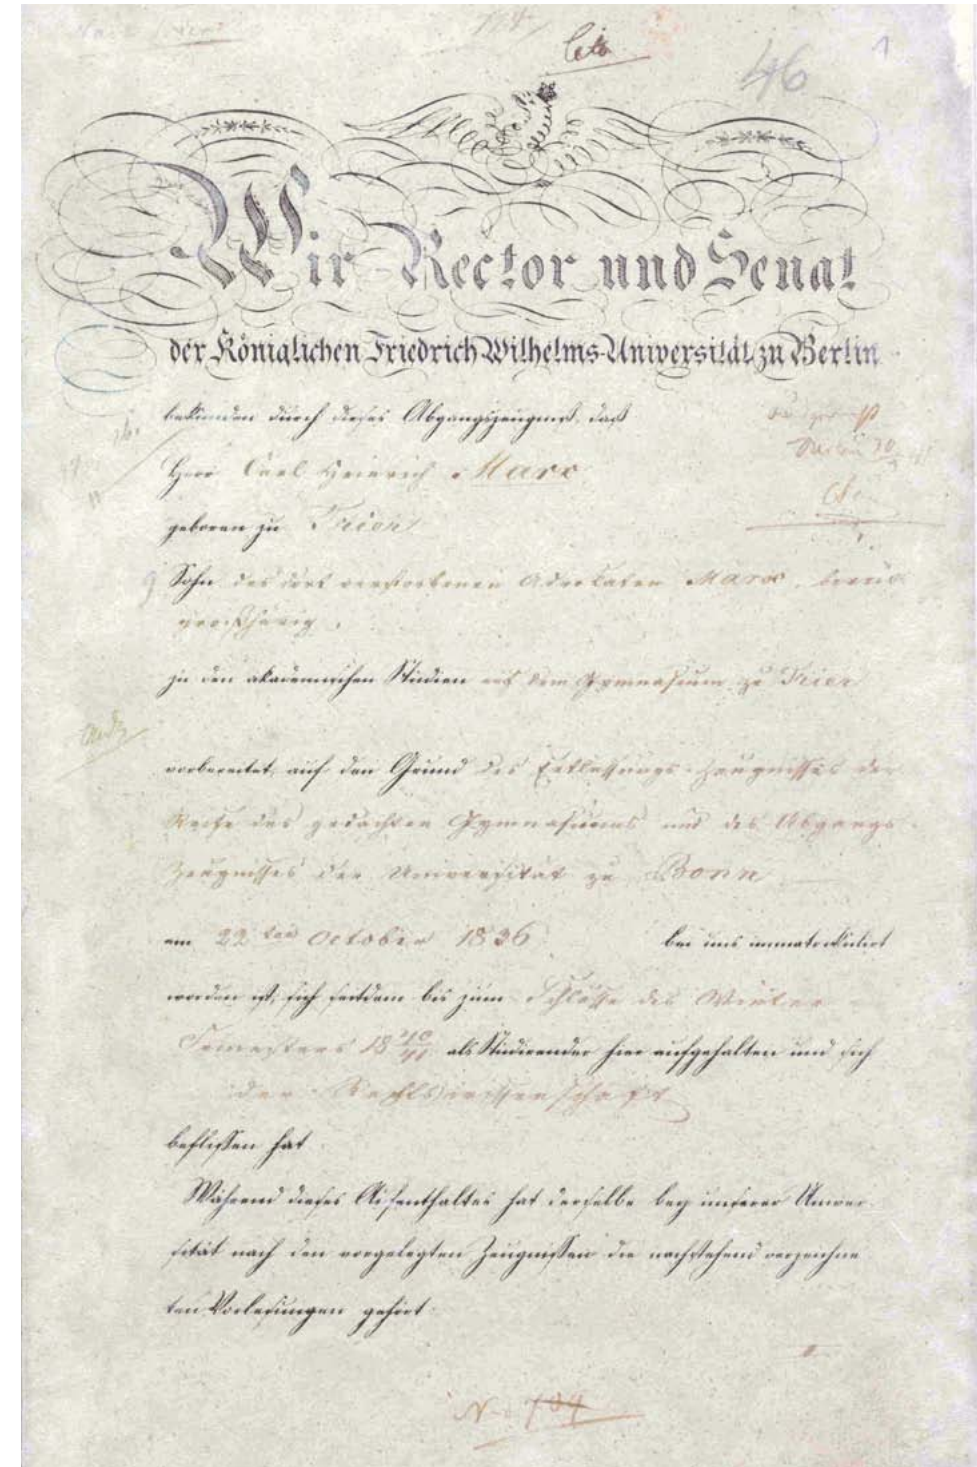 cito
46
1
Wir Rector und Senat
der Königlichen Friedrich Wilhelms-Universität zu Berlin
bekunden durch dieses Abgangszeugniß, daß
Herr Carl Heinrich Marx
geboren zu Trier
Sohn des dort verstorbenen Advokaten Marx,
großjährig,
zu den akademischen Studien auf dem Gymnasium zu Trier
vorbereitet, auf den Grund des Entlassungs-Zeugnisses der
Reife des gedachten Gymnasiums und des Abgangs-
Zeugnisses der Universität zu Bonn
am 22ten October 1836 bei uns immatriculirt
worden ist, sich seitdem bis zum Schlusse des Winter
Semesters 18 40/41 als Studirender hier aufgehalten und sich
der Rechtswissenschaft
beflissen hat.
Während dieses Aufenthaltes hat derselbe bey unserer Univer-
sität nach den vorgelegten Zeugnissen die nachstehend verzeichne
ten Vorlesungen gehört: